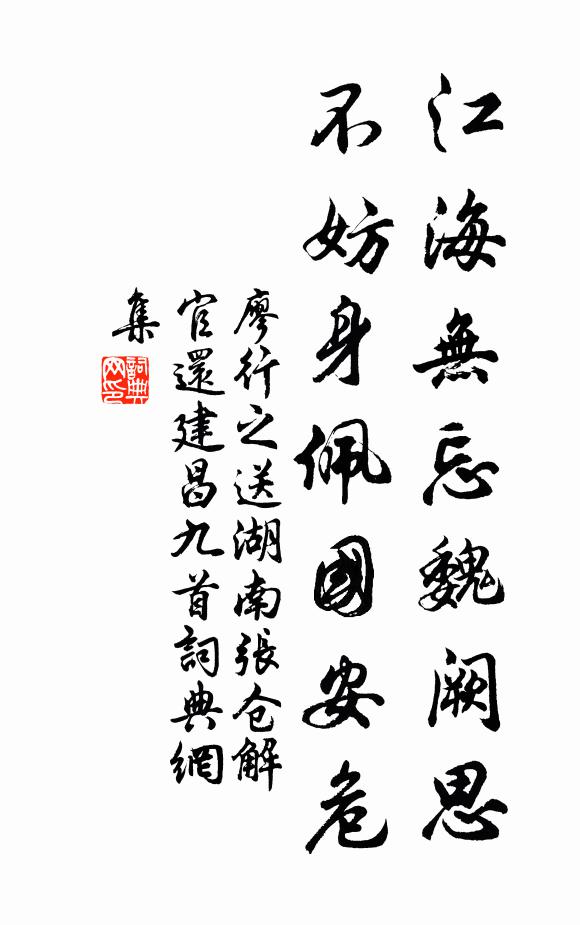 江海無忘魏闕思
不妨身佩國安危
廖行之送湖南張倉解
官還建昌九首詞典網
集
詞典
网印